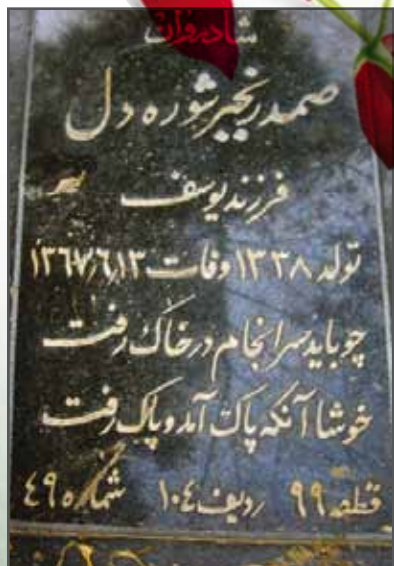 شادروان
صمد رنجبر شوره دل
فرزند یوسف
تولد ۱۳۳۸ وفات ۱۳۶۷٫۶٫۱۳
چو باید سرانجام در خاک رفت
خوشا آنکه پاک آمد و پاک رفت
قطعه ۹۹ ردیف ۱۰۴ شماره ۴۹